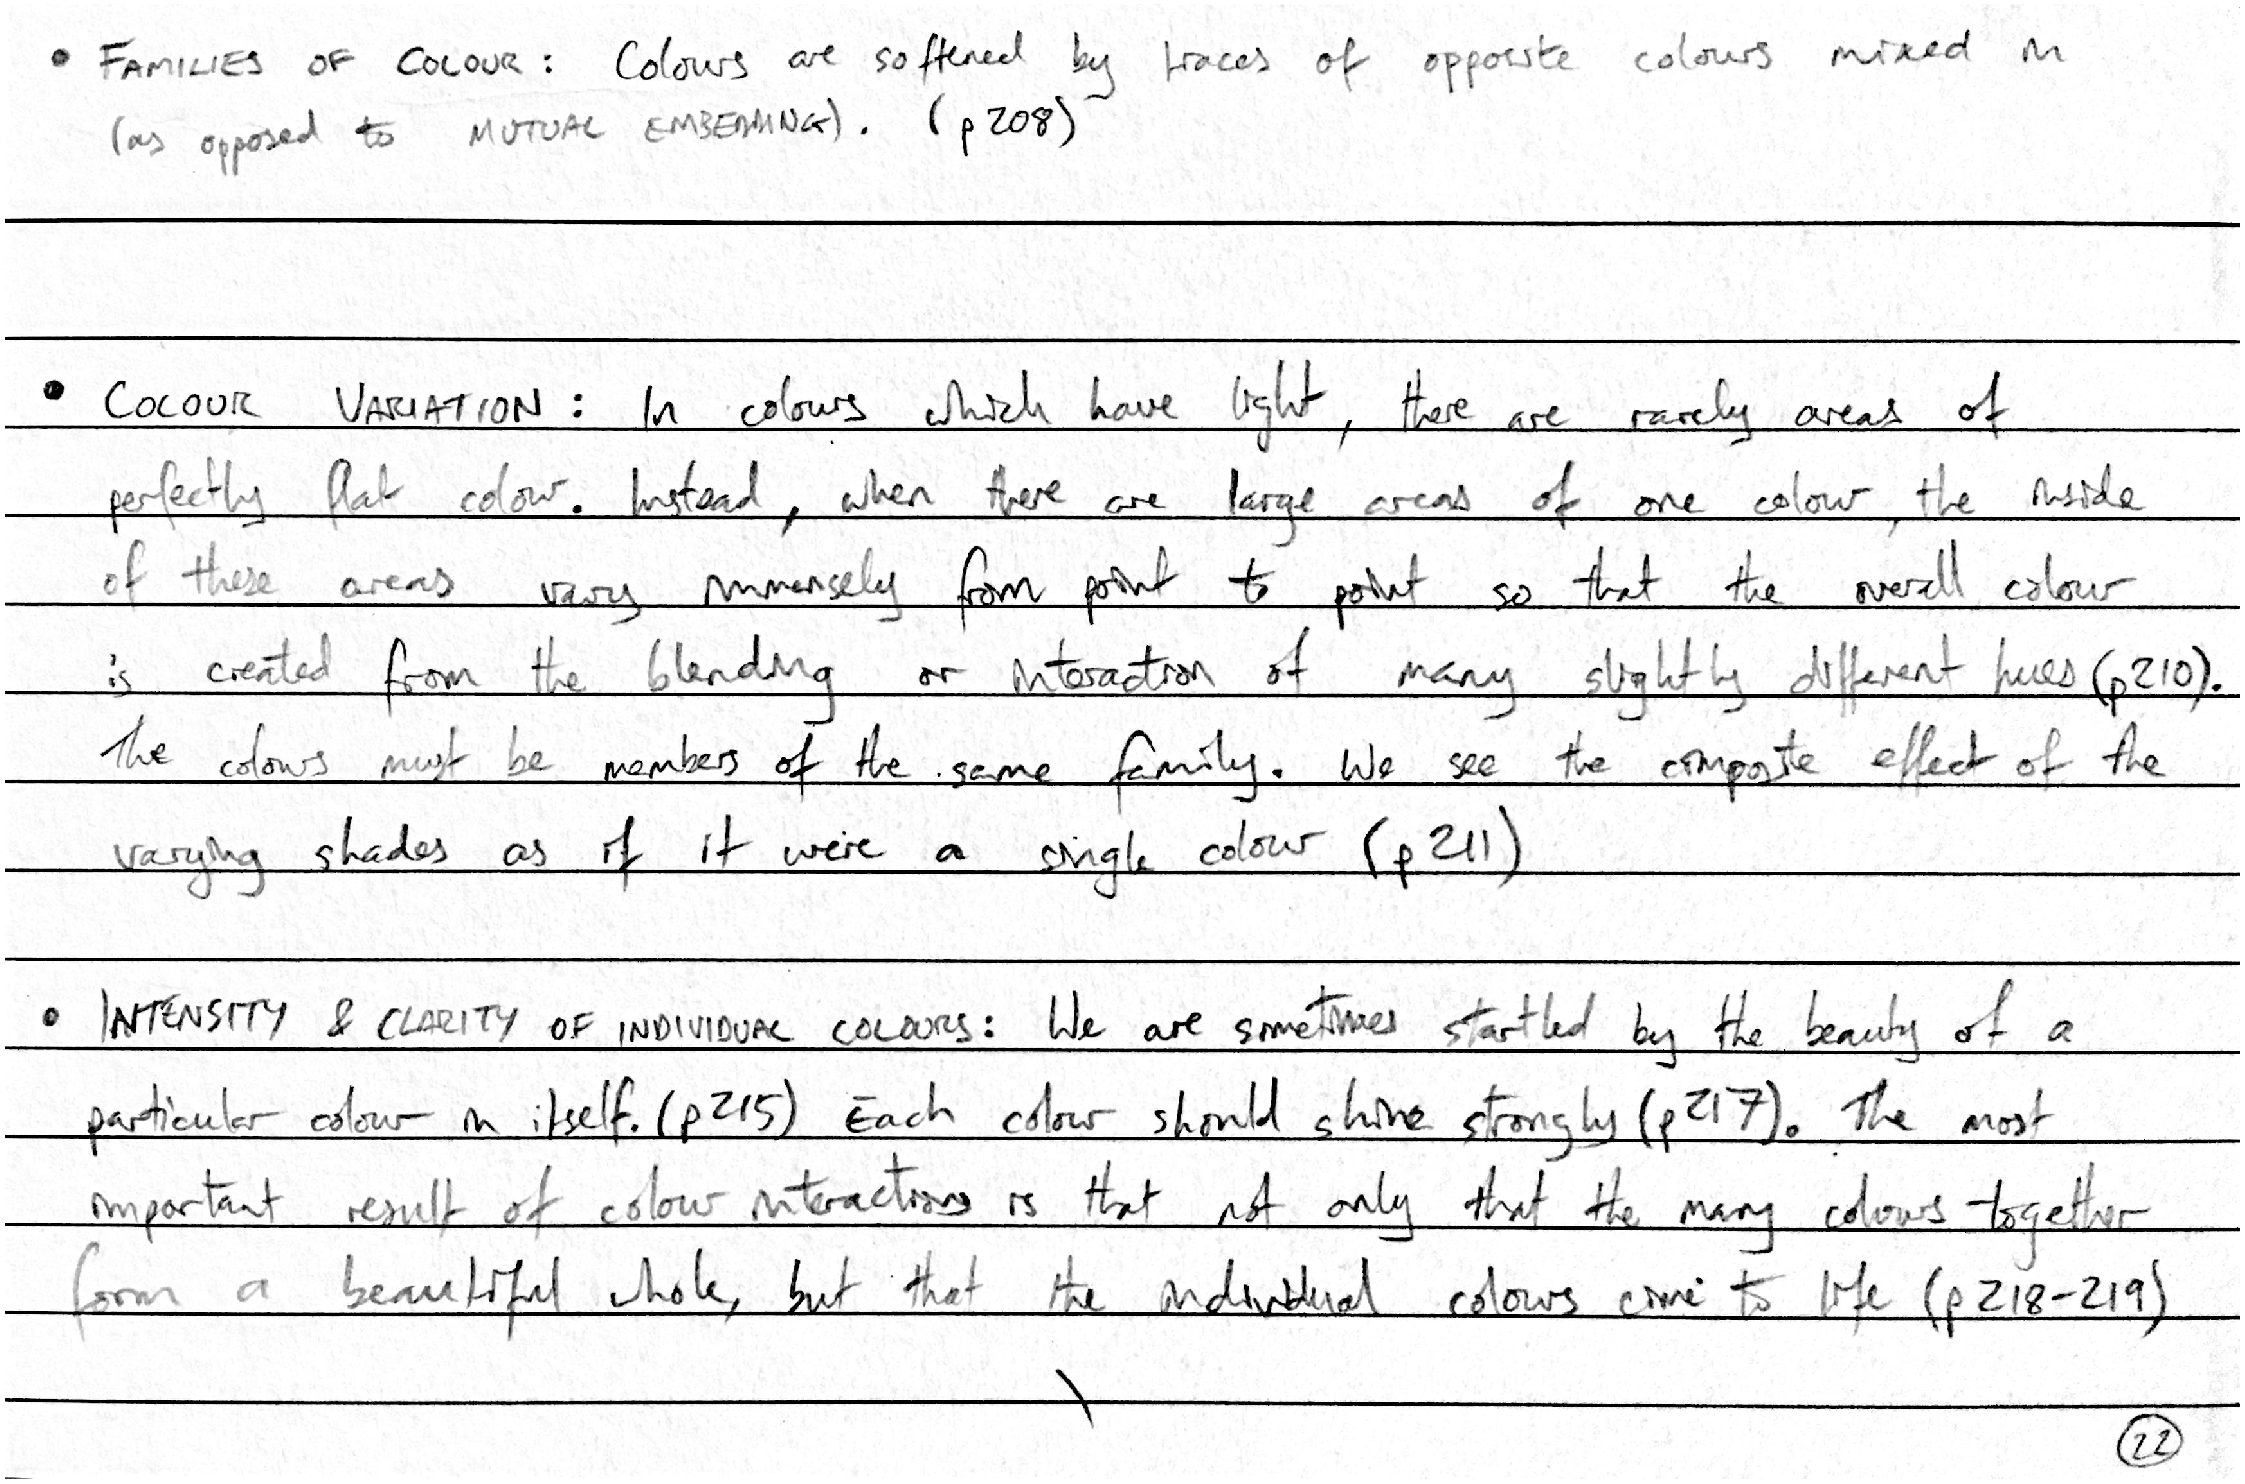 • FAMILIES OF COLOUR: Colours are softened by traces of opposite colours mixed in
(as opposed to MUTUAL EMBEDDING). (p208)
• COLOUR VARIATION: In colours which have light, there are rarely areas of
perfectly flat colour. Instead, when there are large areas of one colour, the inside
of these areas vary immensely from point to point so that the overall colour
is created from the blending or interaction of many slightly different hues (p210).
The colours must be members of the same family. We see the composite effect of the
varying shades as if it were a single colour (p211)
• INTENSITY & CLARITY OF INDIVIDUAL COLOURS: We are sometimes startled by the beauty of a
particular colour in itself. (p215) Each colour should shine strongly (p217). The most
important result of colour interactions is that not only that the many colours together
form a beautiful whole, but that the individual colours come to life (p218-219)
22